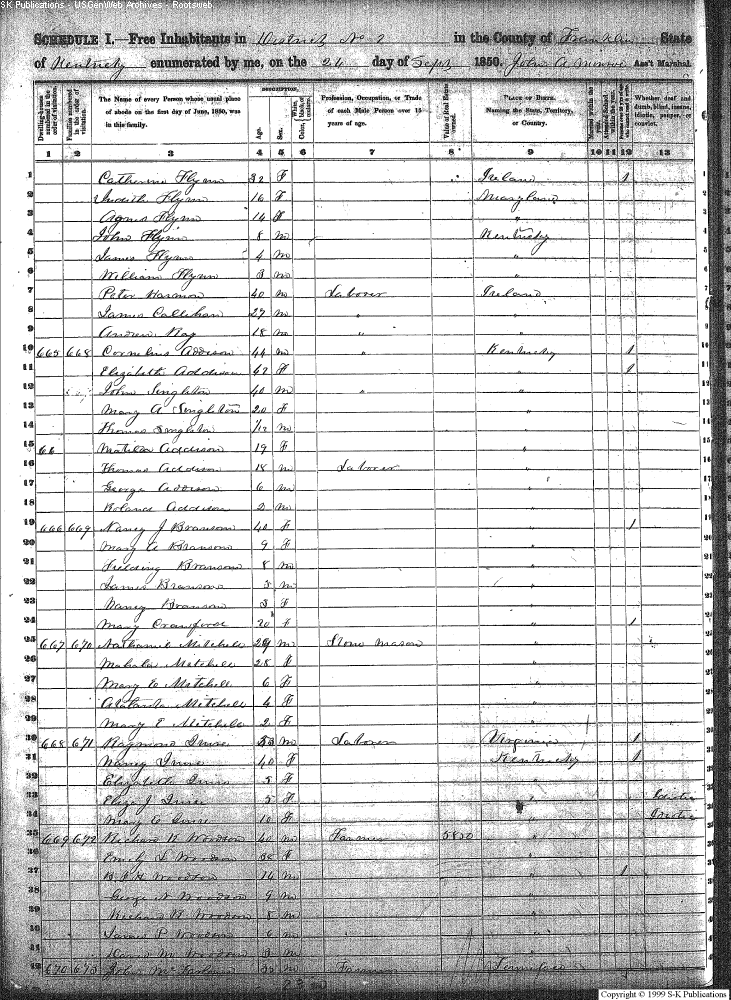 SK Publications - USGenWeb Archives - Rootsweb
SCHEDULE I.—Free Inhabitants in District No 2 in the County of Franklin State
of Kentucky enumerated by me, on the 26 day of Sept 1850. John A Monroe Ass't Marshal
DESCRIPTION.
Dwelling-houses numbered in the order of visitation.
Families numbered in the order of visitation.
The Name of every Person whose usual place of abode on the first day of June, 1850, was in this family.
Age.
Sex.
Color, White, black, or mulatto.
Profession, Occupation, or Trade of each Male Person over 15 years of age.
Value of Real Estate owned.
PLACE OF BIRTH. Naming the State, Territory, or Country.
Married within the year.
Attended School within the year.
Whether deaf and dumb, blind, insane, idiotic, pauper, or convict.
1 2 3 4 5 6 7 8 9 10 11 12 13
1 Catherine Flynn 32 F Ireland 1
2 Judith Flynn 16 F Maryland
3 Agnes Flynn 14 F "
4 John Flynn 8 m Kentucky
5 James Flynn 4 m "
6 William Flynn 3 m "
7 Peter Harmon 40 m Laborer Ireland
8 James Callehan 27 m " "
9 Andrew Ray 18 m " "
10 665 668 Cornelius Addison 44 m " Kentucky 1
11 Elizabeth Addison 42 F " 1
12 John Singleton 40 m " "
13 Mary A Singleton 20 F "
14 Thomas Singleton 1/12 m
15 66 Matilda Addison 19 F "
16 Thomas Addison 18 m Laborer "
17 George Addison 6 m "
18 Roland Addison 2 m "
19 666 669 Nancy J Branson 40 F " 1
20 Mary A Branson 9 F "
21 Fielding Branson 8 m "
22 James Branson 5 m "
23 Nancy Branson 3 F "
24 Mary Crawford 20 F " 1
25 667 670 Nathaniel Mitchell 29 m Stone Mason "
26 Mahala Mitchell 28 F "
27 Mary C Mitchell 6 F "
28 Mitchell 4 F "
29 Mary E Mitchell 2 F "
30 668 671 Raymond Innis 50 m Laborer Virginia 1
31 Nancy Innis 40 F Kentucky 1
32 Elizabeth Innis 5 F "
33 Eliza J Innis 5 F " Idiotic
34 Mary A Innis 10 F " Idiotic
35 669 672 Richard N Woodson 40 m Farmer 5850 "
36 Emily S Woodson F "
37 Woodson 14 m " 1
38 George N Woodson 9 m "
39 Richard N Woodson 8 m "
40 James P Woodson 6 m "
41 M Woodson 3 m "
42 670 673 John m Farmer Tennessee
Copyright © 1999 S-K Publications